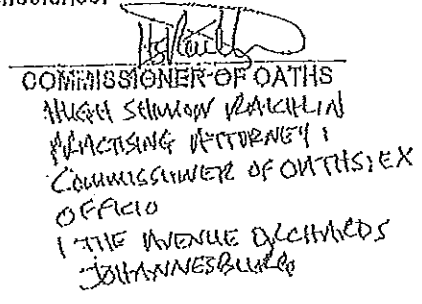 COMMISSIONER OF OATHS
HUGH SHIMON RAICHLIN
PRACTISING ATTORNEY /
COMMISSIONER OF OATHS: EX
OFFICIO
1 THE AVENUE ORCHARDS
JOHANNESBURG